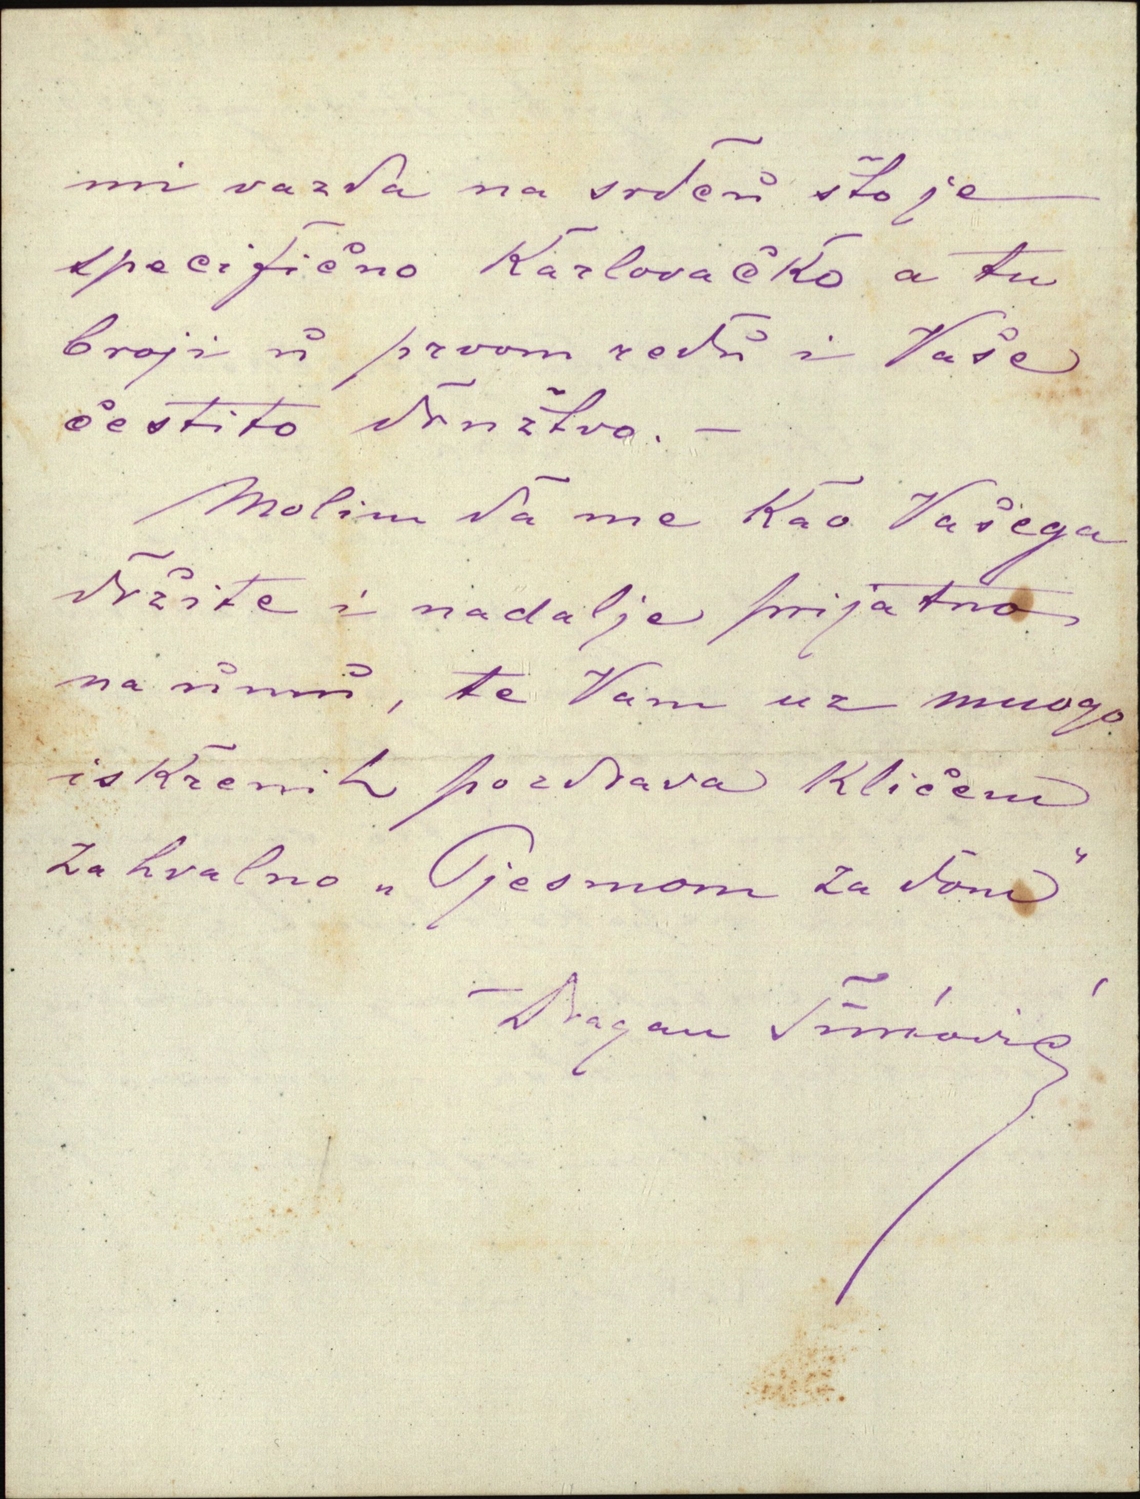 mi vazda na srdcu što je
specifično Karlovačko a tu
broji u prvom redu i Vaše
čestito družtvo. —
Molim da me kao Vašega
držite i nadalje prijatno
na umu, te Vam uz mnogo
iskrenih pozdrava kličem
zahvalno „Pjesmom za dom"
Dragan